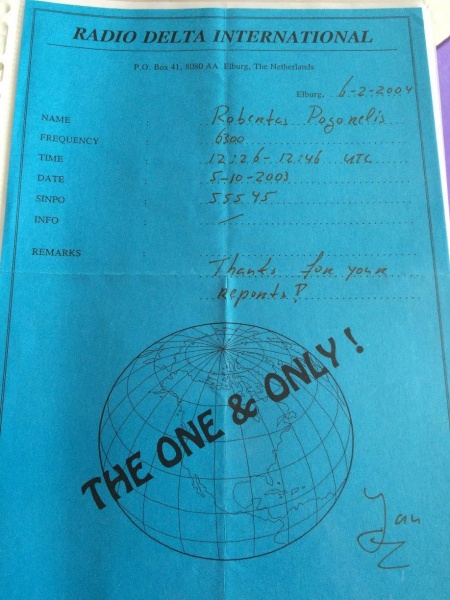 RADIO DELTA INTERNATIONAL
P.O. Box 41, 8080 AA Elburg, The Netherlands
Elburg, 6-2-2004
NAME : Robertas Pogorelis
FREQUENCY : 6300
TIME : 12:26-12:46 UTC
DATE : 5-10-2003
SINPO : 55545
INFO : /
REMARKS : Thanks for your
reports!
THE ONE & ONLY!
Jan